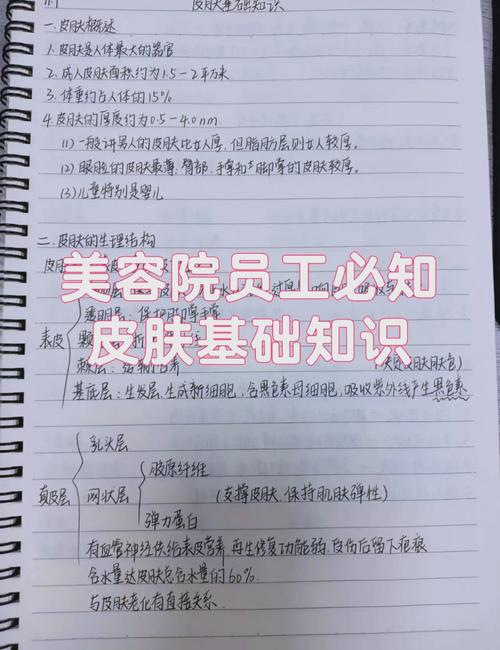 皮肤基础知识
一.皮肤概述
1.皮肤是人体最大的器官
2.成人皮肤面积约为1.5-2平方米
3.体重约占人体的15%
4.皮肤的厚度约为0.5-4.0nm
(1)一般讲男人的皮肤比女人厚,但脂肪层则女人较厚。
(2)眼脸的皮肤最薄,臀部、手掌和脚掌的皮肤较厚。
(3)儿童特别是婴儿
二.皮肤的生理结构
美容院员工必知
皮肤基础知识
表皮
透明层:保护手掌
基底层:生发层,生成新细胞,含黑色素母细胞,吸收紫外线产生黑色素
(决定皮肤肤色)
真皮层
乳头层
网状层
胶原纤维
弹力蛋白
(支撑皮肤,保持肌肤弹性)
有血管神经供给表皮营养,再生修复功能弱,皮伤后留下疤痕
含水量达皮肤总含水量的60%.
与皮肤老化有直接关系.